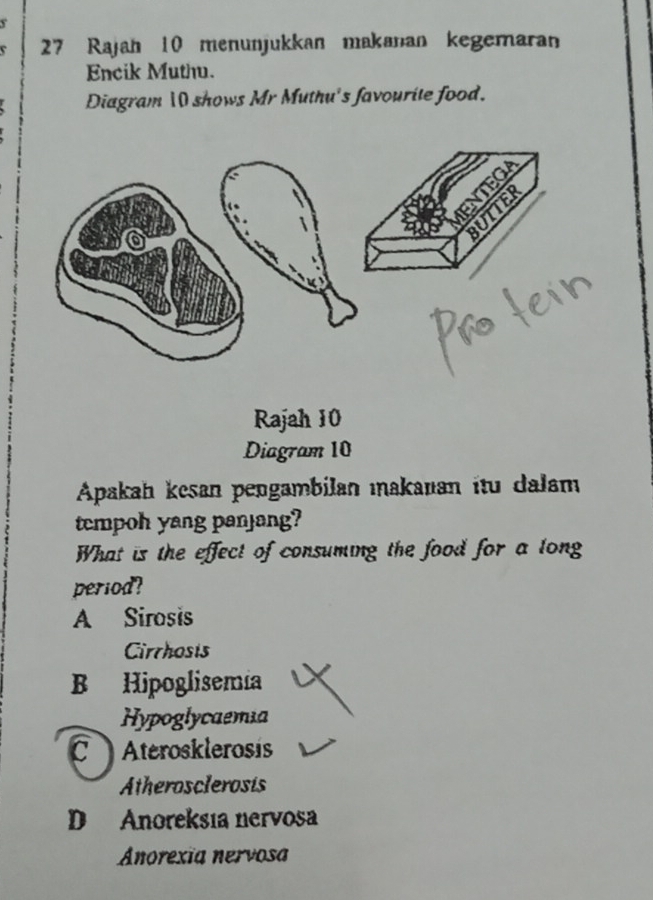 27 Rajah 10 menunjukkan makanan kegemaran
Encik Muthu.
Diagram 10 shows Mr Muthu's favourite food.
MENTEGA
BUTTER
Protein
Rajah 10
Diagram 10
Apakah kesan pengambilan makanan itu dalam
tempoh yang panjang?
What is the effect of consuming the food for a long
period?
A Sirosis
Cirrhosis
B Hipoglisemia
Hypoglycaemia
C Aterosklerosis
Atherosclerosis
D Anoreksia nervosa
Anorexia nervosa